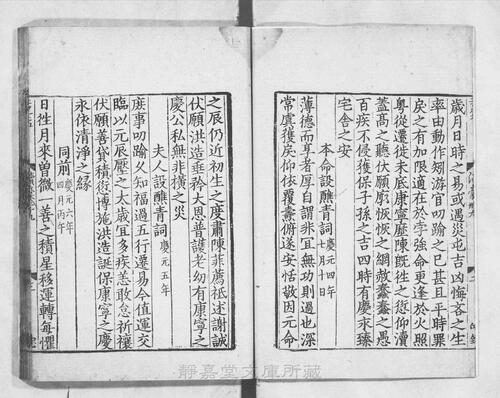 歲月日時之易或遇災屯吉凶悔吝之生
率由動作矧游官叨踰之已甚且平時罪
戾之有加限適在於孛強命更逢於火照
粤從遷徙未底康寧歷陳既往之愆仰瀆
蓋高之聽伏願廓恢恢之網赦蠢蠢之愚
百疾不侵獲保子孫之吉四時有慶永臻
宅舍之安
本命設醮青詞慶元四年七月十日
薄德而享者厚自謂非宜無功則過也深
常虞獲戾仰依覆燾俯遂安恬敬因元命
之辰仍近初生之度肅陳菲薦祗述謝誠
伏願洪造垂矜大恩普護老幼有康寧之
慶公私無非橫之災
夫人設醮青詞慶元五年
庶事叨踰久知福過五行遷易今值運交
臨以元辰壓之太歲宜多疾恙敢怠祈禳
伏願善貸積愆博施洪造誕保康寧之慶
永依清淨之緣
同前慶元六年四月丙午
日徃月來曾微一善之積星移運轉每懼
靜嘉堂文庫所藏